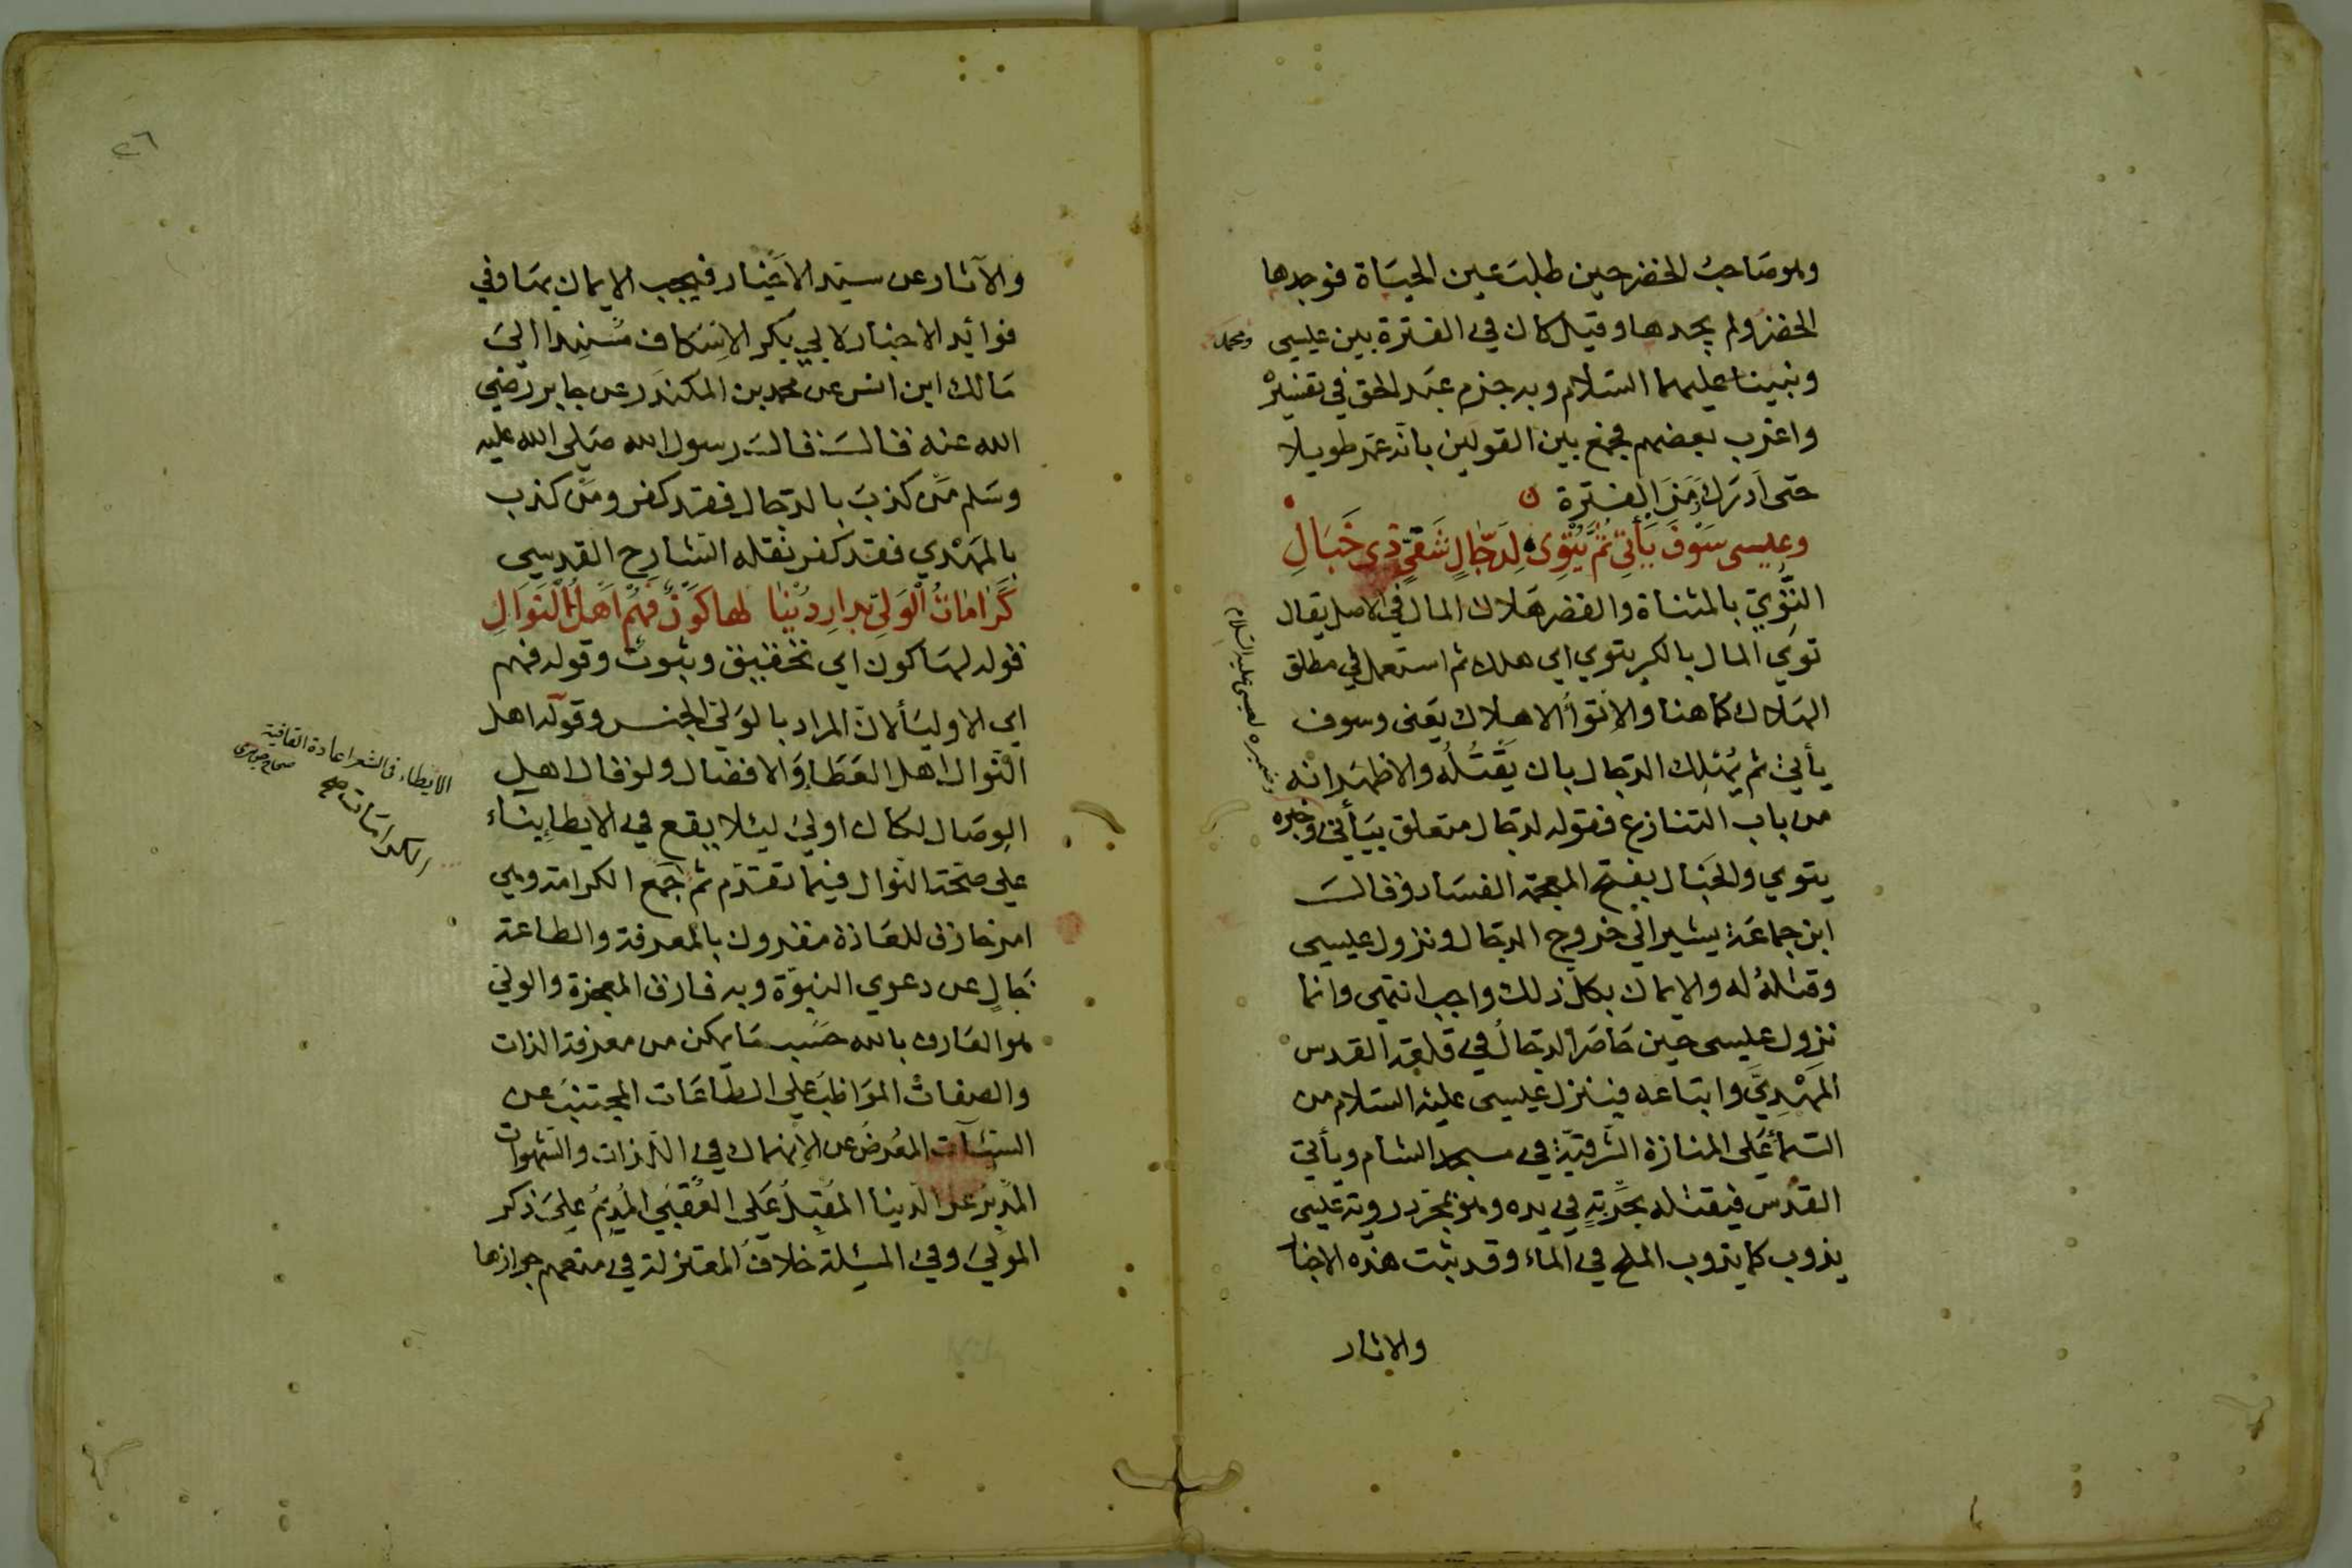 وهو صاحب الخضر حين طلب عين الحياة فوجدها
الخضر ولم يجدها وقيل كان في الفترة بين عيسى
ومحمد
ونبينا عليهما السلام وبه جزم عبد الحق في تفسيره
واغرب بعضهم فجمع بين القولين بانه عمر طويلا
حتى ادرك زمن الفترة
وعيسى سَوْفَ يَأْتِي ثُمَّ يُتْوِي لِدَجَّالٍ شَقِيٍّ ذِي خَبَالِ
التوى بالمثناة والقصر هلاك المال في الاصل يقال
توى المال بالكسر يتوي اي هلك ثم استعمل في مطلق
الهلاك كما هنا والاتواء الاهلاك يعني وسوف
يأتي ثم يُهلك الدجال بان يَقتُلُه والاظهر انه
من باب التنازع فقوله لدجال متعلق بيأتي وخبره
وضميره لعيسى عليه السلام
يتوي والخبال بفتح المعجمة الفساد وقال
ابن جماعة يشير الى خروج الدجال ونزول عيسى
وقتله له والايمان بكل ذلك واجب انتهى وانما
نزول عيسى حين حاصر الدجال في قلعة القدس
المَهْدِيَّ واتباعه فينزل عيسى عليه السلام من
السماء على المنارة الشرقية في مسجد الشام ويأتي
القدس فيقتله بحربة في يده وهو بمجرد رؤية عيسى
يذوب كما يذوب الملح في الماء وقد ثبت هذه الاخبا
والاثار
٢٦
والآثار عن سيد الاخيار فيجب الايمان بها وفي
فوائد الاخبار لابي بكر الاسكاف مسندا الى
مالك ابن انس عن محمد بن المكندر عن جابر رضي
الله عنه قال قال رسول الله صلى الله عليه
وسلم من كذب بالدجال فقد كفر ومن كذب
بالمهدي فقد كفر نقله الشارح القدسي
كَرَامَاتُ الْوَلِيِّ بِدَارِ دُنْيَا لها كَوْنٌ فَهُمْ أَهْلُ النَّوَالِ
قوله لها كون اي تحقيق وثبوت وقوله فهم
اي الاولياء لان المراد بالولي الجنس وقوله اهل
النوال اهل العطاء والافضال ولو قال اهل
الوصال لكان اولى ليئلا يقع في الايطا بناء
الايطاء في الشعر اعادة القافية
صحاح جوهري
على صحة النوال فيما تقدم ثم جمع الكرامة وهي
الكرامات صح
امر خارق للعادة مقرون بالمعرفة والطاعة
خالٍ عن دعوى النبوة وبه فارق المعجزة والولي
هو العارف بالله حسب ما يمكن من معرفة الذات
والصفات المواظب على الطاعات المجتنب عن
السيئات المعرض عن الانهماك في اللذات والشهوات
المدبر عن الدنيا المقبل على العقبى المديم على ذكر
المولى وفي المسئلة خلاف المعتزلة في منعهم جوازها